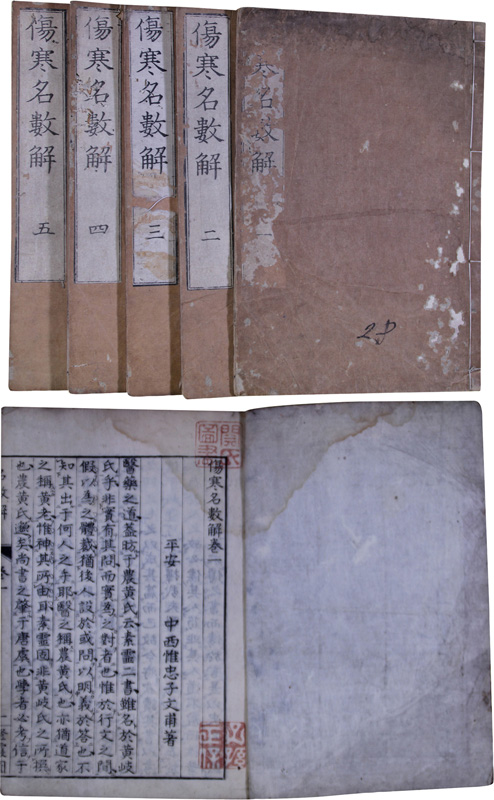 傷寒名數解 五
傷寒名數解 四
傷寒名數解 三
傷寒名數解 二
寒名數解 一
28
傷寒名數解卷一
平安 中西惟忠子文甫著
醫藥之道蓋昉于農黃氏云素靈二書雖名於黃岐
氏乎非實有其問而實為之對者也惟於行文之間
假以為之體裁猶後人設於或問以明義於答也不
知其出于何人之手耶醫之稱農黃氏也亦猶道家
之稱黃老惟神其所由耳素靈固非黃岐氏之所撰
也農黃氏邈矣尚書之肇于唐虞也學者必考信于
名數解 卷一